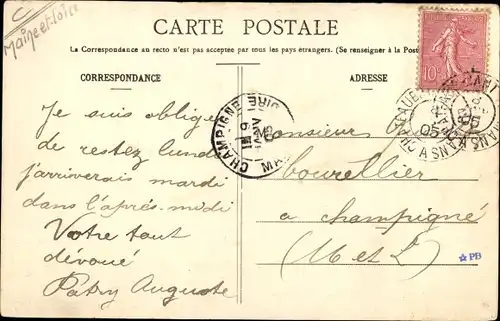 Maine et Loire
CARTE POSTALE
La Correspondance au recto n'est pas acceptée par tous les pays étrangers. (Se renseigner à la Poste
CORRESPONDANCE
ADRESSE
Je suis obligé
de restez lundi
j'arriverais mardi
dans l'après-midi
Votre tout
dévoué
Patry Auguste
Monsieur
à champigné
(M et L)
10
CHAMPIGNÉ
05
PB